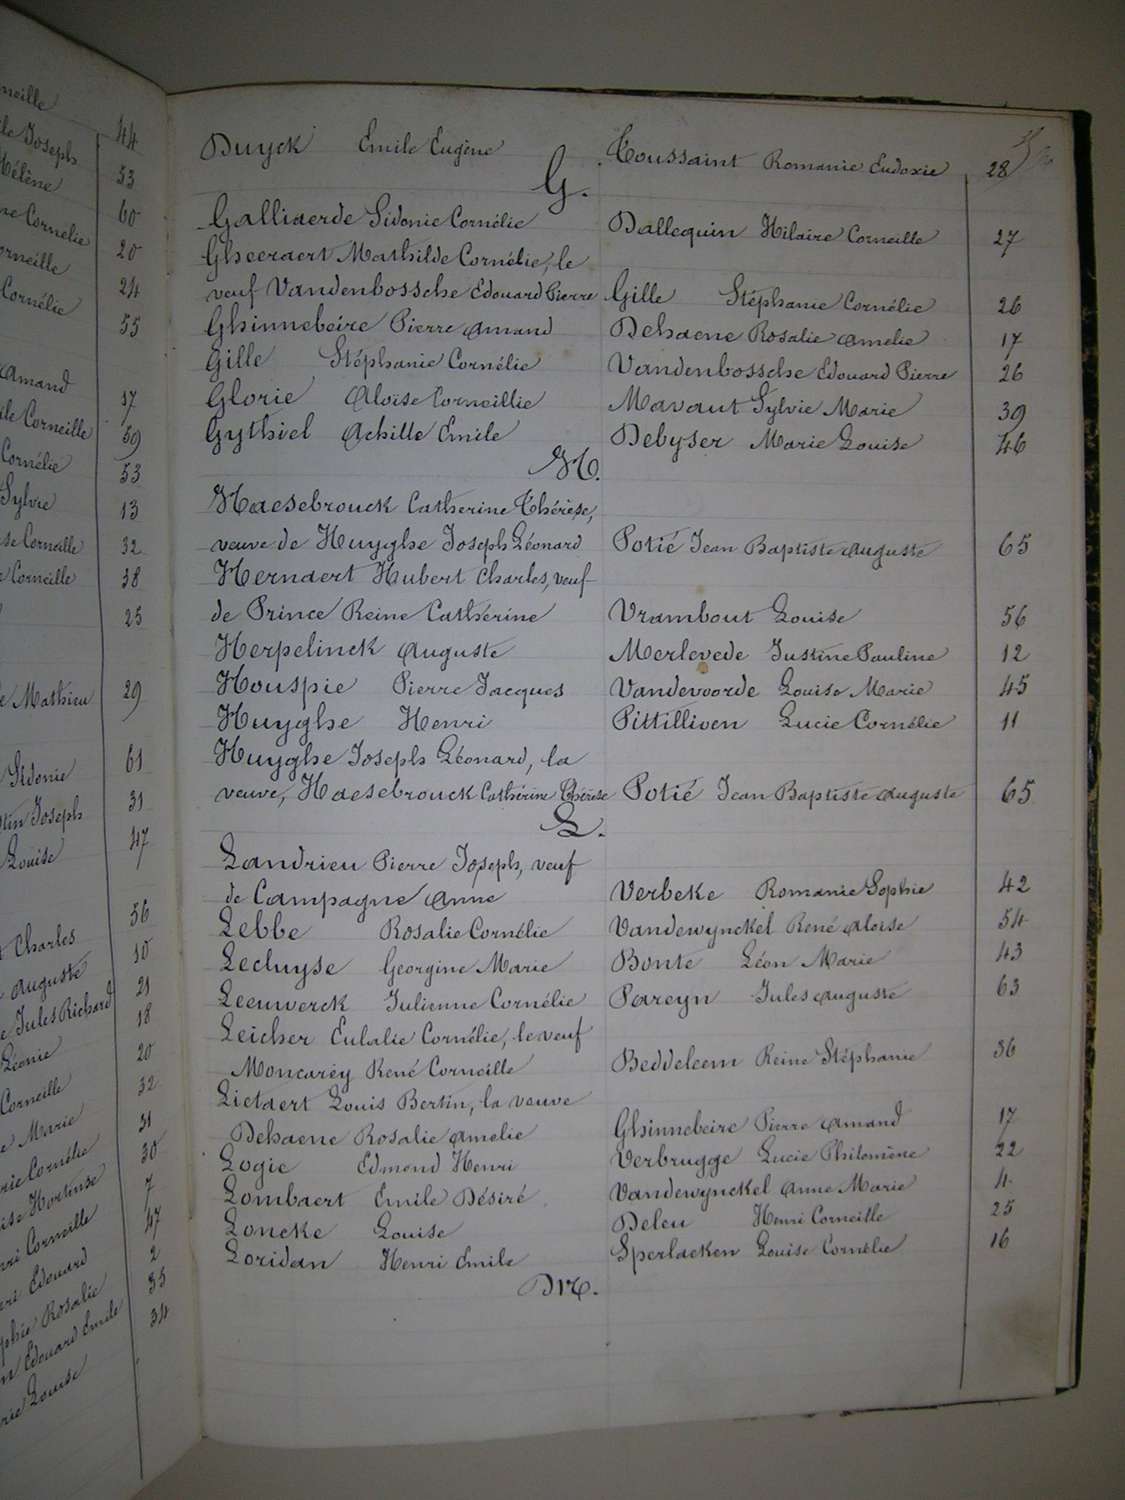 neille
44
le Joseph
53
Hélène
60
se Cornélie
20
orneille
24
Cornélie
55
Amand
17
ile Corneille
59
Cornélie
53
Sylvie
13
se Corneille
32
e Corneille
38
25
e Mathieu
29
Sidonie
61
tin Joseph
31
Louise
47
56
Charles
10
Auguste
21
e Jules Richard
18
Léonie
20
Corneille
32
e Marie
31
rie Cornélie
30
ise Hortense
7
nri Corneille
47
ri Edouard
2
phie Rosalie
35
n Edouard Emile
34
rie Louise
Duyck Emile Eugène Toussaint Romanie Eudoxie 28
G.
Galliaerde Sidonie Cornélie Dallequin Hilaire Corneille 27
Gheeraert Mathilde Cornélie, le
veuf Vandenbossche Edouard Pierre Gille Stéphanie Cornélie 26
Ghinnebeire Pierre Amand Dehaene Rosalie Amelie 17
Gille Stéphanie Cornélie Vandenbossche Edouard Pierre 26
Glorie Aloïse Corneillie Mavaut Sylvie Marie 39
Gythiel Achille Emile Debyser Marie Louise 46
H.
Haesebrouck Catherine Thérèse,
veuve de Huyghe Joseph Léonard Potié Jean Baptiste Auguste 65
Hernaert Hubert Charles, veuf
de Prince Reine Cathérine Vrambout Louise 56
Herpelinck Auguste Merlevede Justine Pauline 12
Houspie Pierre Jacques Vandevoorde Louise Marie 45
Huyghe Henri Pittillioen Lucie Cornélie 11
Huyghe Joseph Léonard, la
veuve, Haesebrouck Cathérine Thérèse Potié Jean Baptiste Auguste 65
L.
Landrieu Pierre Joseph, veuf
de Campagne Anne Verbeke Romanie Sophie 42
Lebbe Rosalie Cornélie Vandewynckel René Aloïse 54
Lecluyse Georgine Marie Bonte Léon Marie 43
Leeuwerck Julienne Cornélie Pareyn Jules Auguste 63
Leicher Eulalie Cornélie, le veuf
Moncarey René Corneille Beddeleem Reine Stéphanie 36
Lietaert Louis Bertin, la veuve
Dehaene Rosalie Amelie Ghinnebeire Pierre Amand 17
Logie Edmond Henri Verbrugge Lucie Philomène 22
Lombaert Emile Désiré Vandewynckel Anne Marie 4
Loncke Louise Deleu Henri Corneille 25
Loridan Henri Emile Sperlaeken Louise Cornélie 16
M.